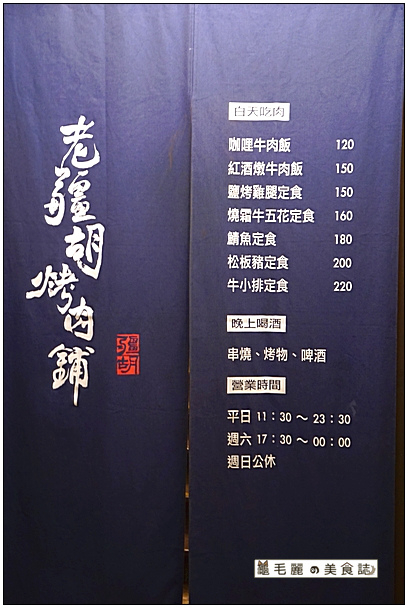 老疆朝烤肉鋪
白天吃肉
咖哩牛肉飯 120
紅酒燉牛肉飯 150
鹽烤雞腿定食 150
燒霜牛五花定食 160
鯖魚定食 180
松板豬定食 200
牛小排定食 220
晚上喝酒
串燒、烤物、啤酒
營業時間
平日 11:30～23:30
週六 17:30～00:00
週日公休
毛麗の美食誌